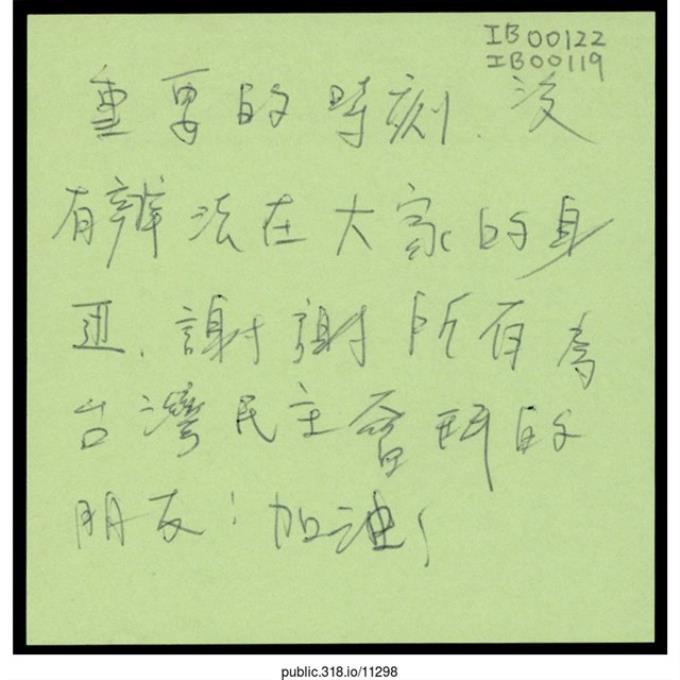 IB00122
IB00119
重要的時刻,沒
有辦法在大家的身
邊,謝謝所有為
台灣民主奮鬥的
朋友!加油!
public.318.io/11298